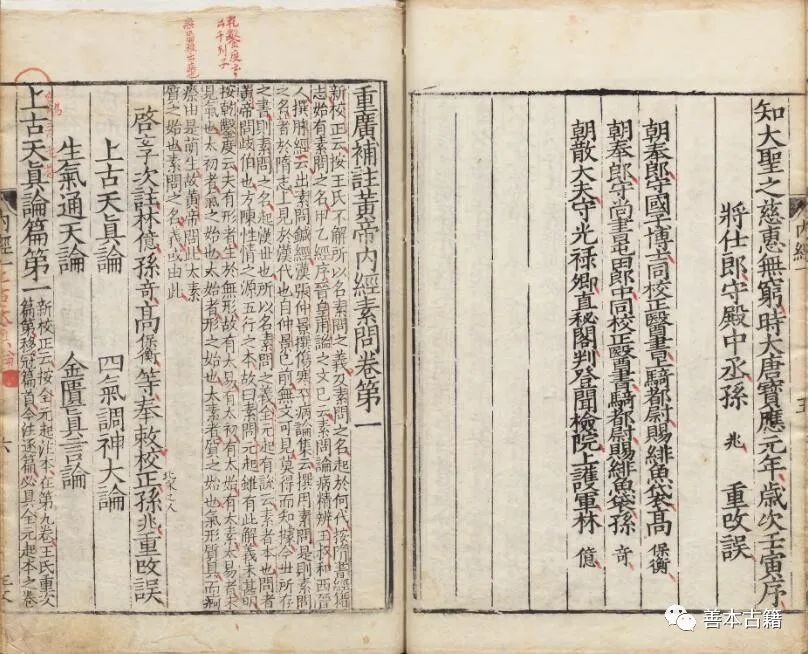 知大聖之慈惠無窮時大唐寶應元年歲次壬寅序
將仕郎守殿中丞孫 兆 重改誤
朝奉郎守國子博士同校正醫書上騎都尉賜緋魚袋高 保衡
朝奉郎守尚書屯田郎中同校正醫書騎都尉賜緋魚袋孫 奇
朝散大夫守光祿卿直秘閣判登聞檢院上護軍林 億
重廣補註黃帝內經素問卷第一
新校正云按王氏不解所以名素問之義及素問之名起於何代按隋書經籍
志始有素問之名甲乙經序晉皇甫謐之文已云素問論病精辨王叔和西晉
人撰脉經云出素問鍼經漢張仲景撰傷寒卒病論集云撰用素問是則素問
之名著於隋志上見於漢代也自仲景已前無文可見莫得而知據今世所存
之書則素問之名起漢世也所以名素問之義全元起有說云素者本也問者
黃帝問岐伯也方陳性情之源五行之本故曰素問元起雖有此解義未甚明
按乾鑿度云夫有形者生於無形故有太易有太初有太始有太素太易者未
見氣也太初者氣之始也太始者形之始也太素者質之始也氣形質具而痾
瘵由是萌生故黃帝問此太素
質之始也素問之名義或由此
啓玄子次註林億孫奇高保衡等奉敕校正孫兆重改誤
北宋之人
上古天眞論 四氣調神大論
生氣通天論 金匱眞言論
上古天眞論篇第一
新校正云按全元起注本在第九卷王氏重次
篇第移冠篇首今注逐篇必具全元起本之卷
內經一
六
善本古籍